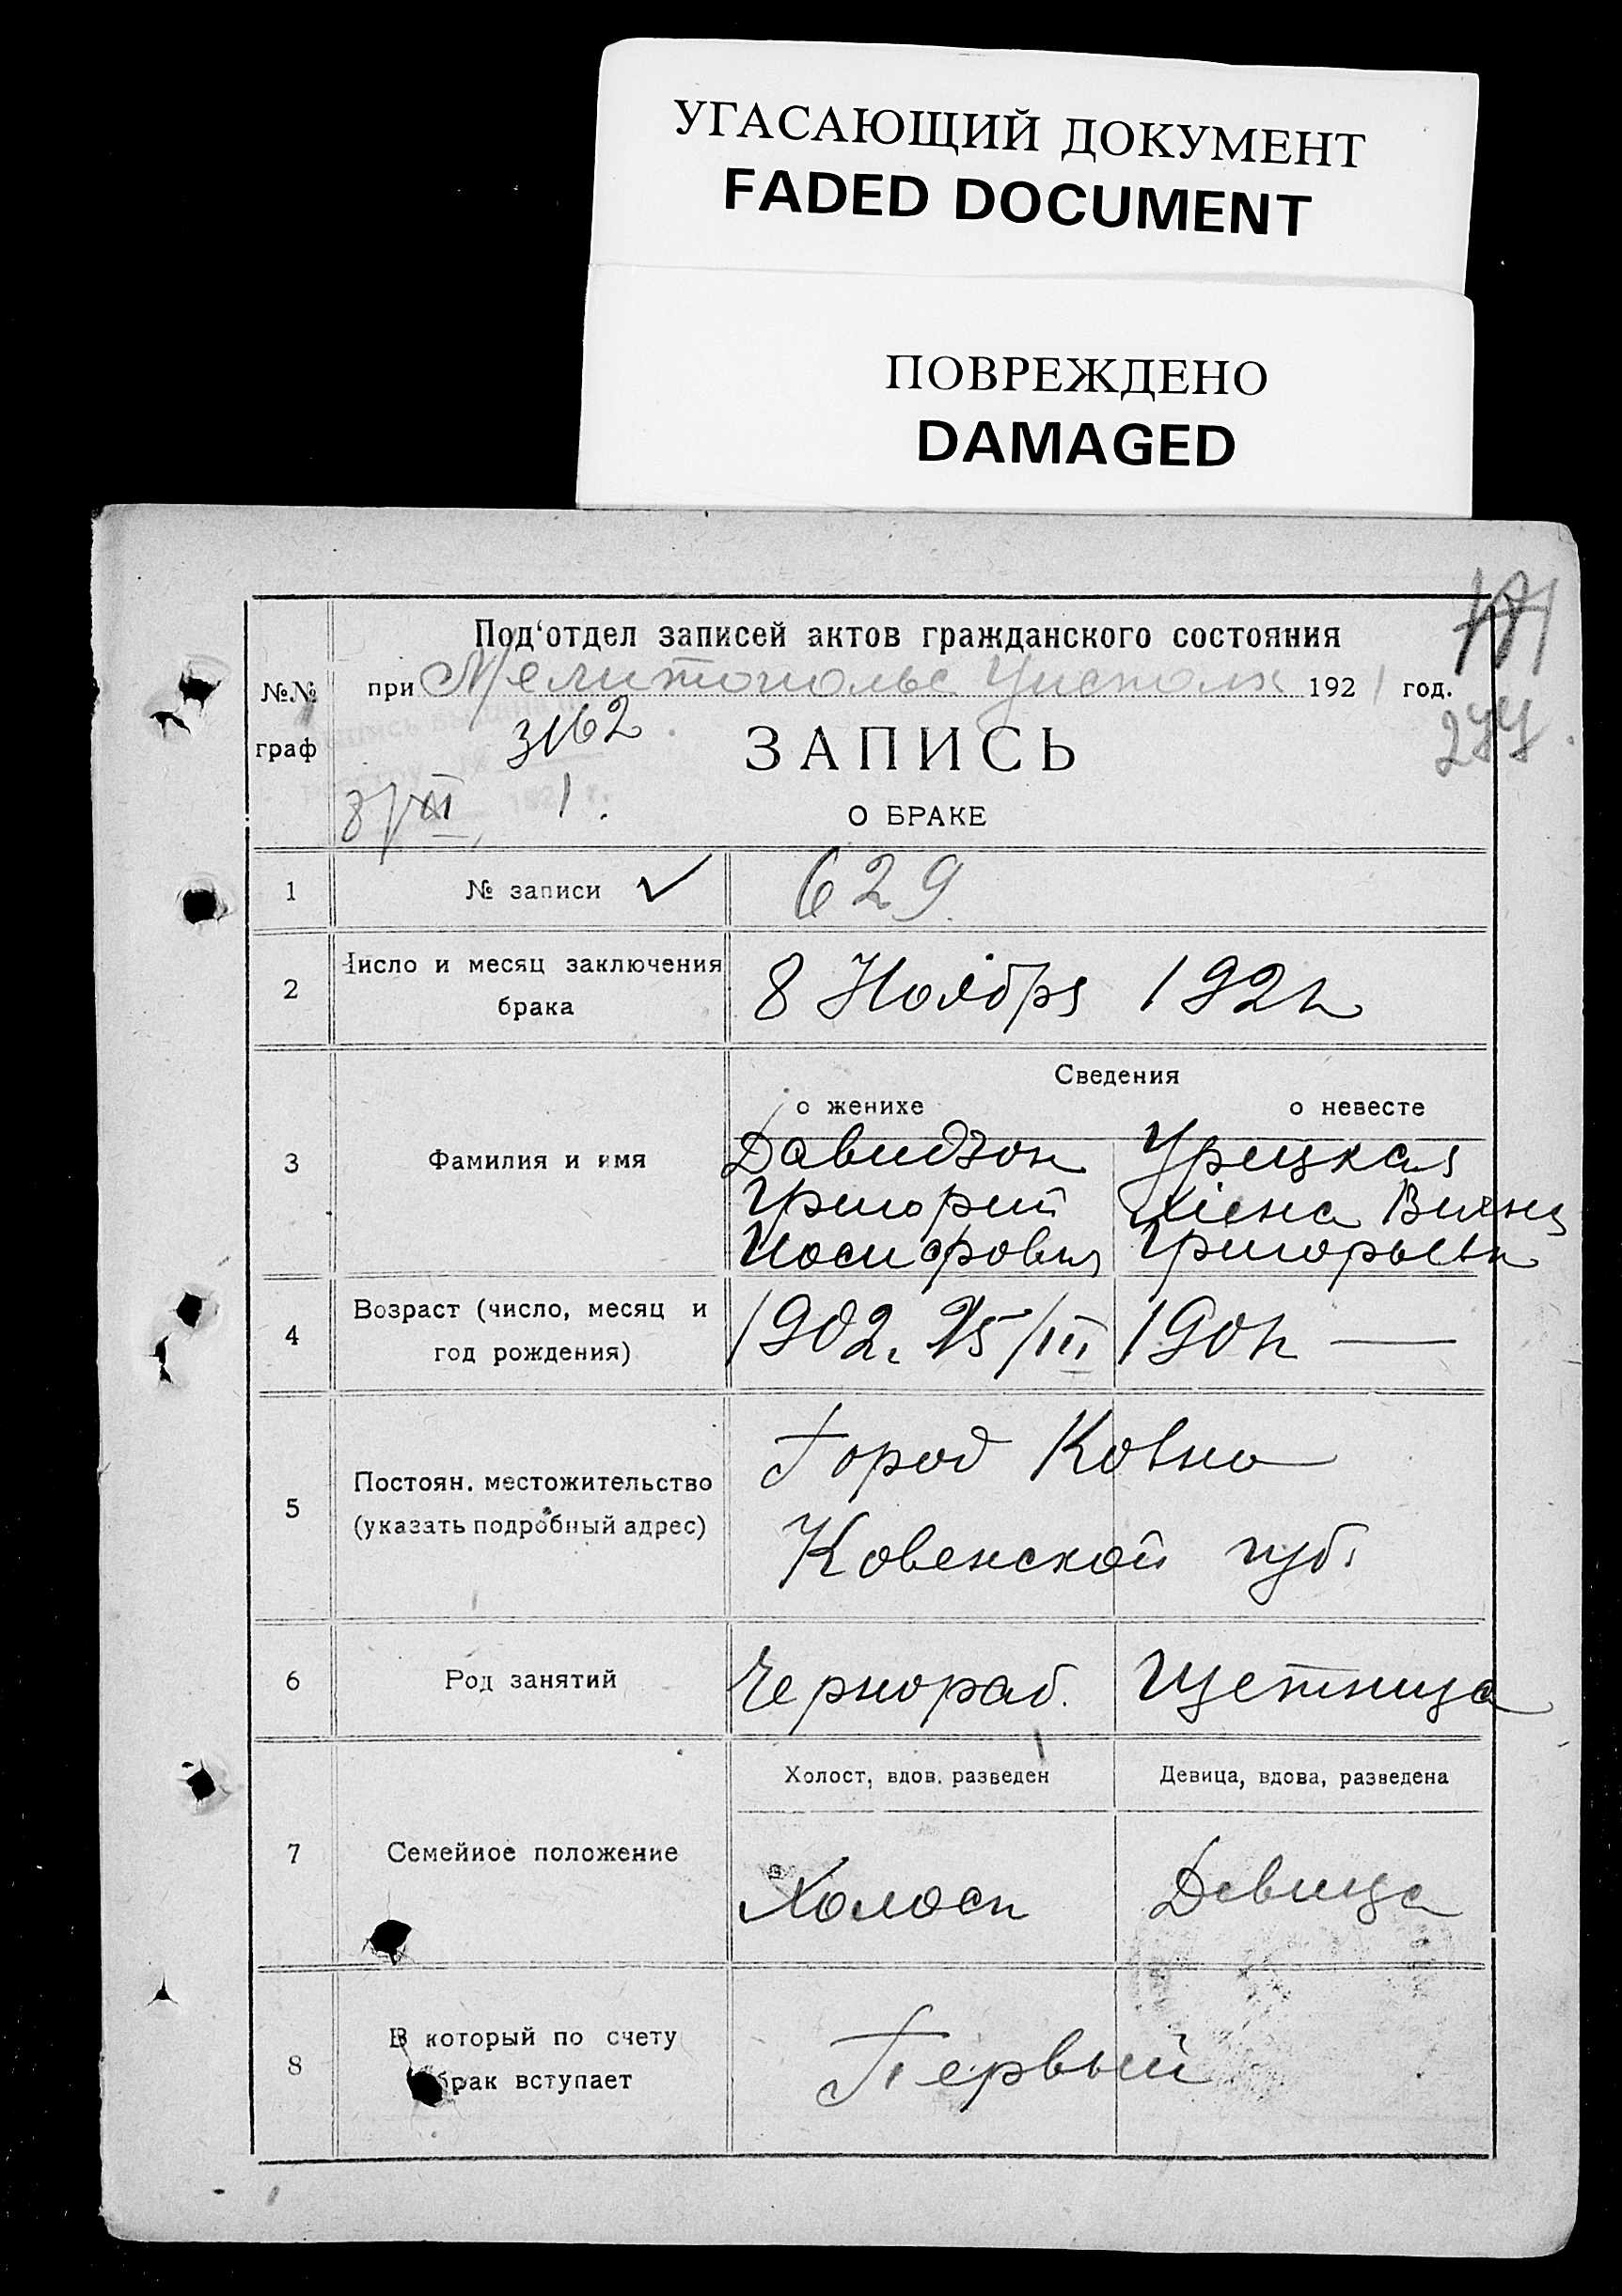 УГАСАЮЩИЙ ДОКУМЕНТ
FADED DOCUMENT
ПОВРЕЖДЕНО
DAMAGED
277
№№ граф
Под‘отдел записей актов гражданского состояния
при Мелитопольс Уисполк 1921 год.
3162
ЗАПИСЬ
8/XI 1 г.
О БРАКЕ
1 № записи ✓ 629
2 Число и месяц заключения брака 8 Ноября 192
3 Фамилия и имя
Сведения
о женихе о невесте
Давидзон Урецкая
Григорий Вихна
Иосифович Григорьевн
4 Возраст (число, месяц и год рождения) 1902 г. 25/III 190 —
5 Постоян. местожительство (указать подробный адрес)
Город Ковно
Ковенской губ.
6 Род занятий Чернораб. Щетница
7 Семейное положение
Холост, вдов, разведен Девица, вдова, разведена
Холост Девица
8 В который по счету брак вступает Первый